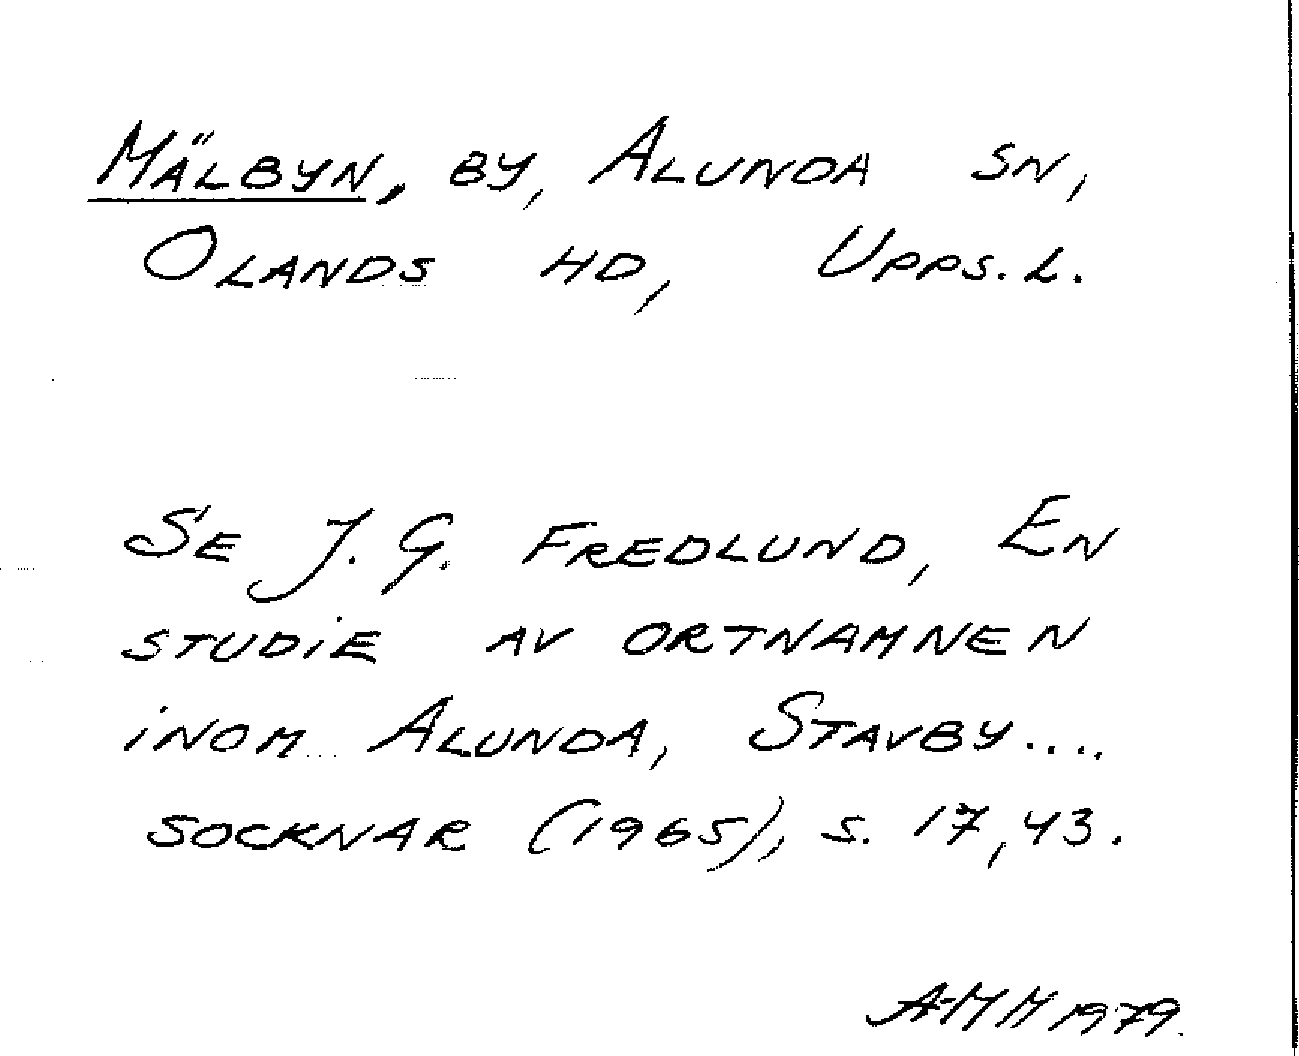 Mälbyn, by, Alunda sn,
Olands hd, Upps. l.
Se J. G. Fredlund, En
studie av ortnamnen
inom Alunda, Stavby....
socknar (1965), s. 17, 43.
A-MM 1979.